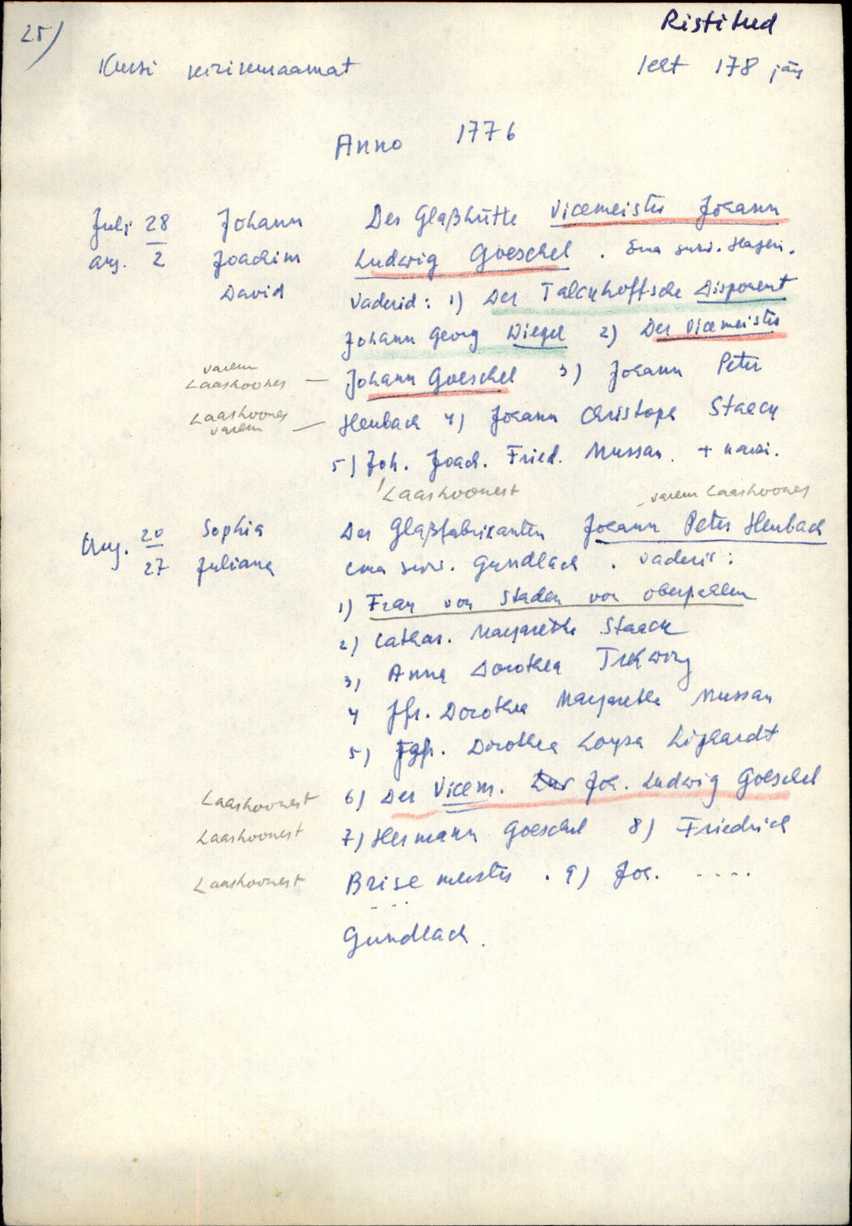 25)
Ristitud
Kursi kirikuraamat
leht 178 järg
Anno 1776
Juli 28 Johann Der Glaßhütte Vicemeister Johann
aug. 2 Joachim Ludwig Goeschel. Ema sünd. Hagen.
David Vaderid: 1) Der Talckhoffsche Disponent
Johann Georg Diegel 2) Der Vicemeister
varem
Laashoones — Johann Goeschel 3) Johann Peter
Laashoones
varem — Heubach 4) Johann Christoph Staack
5) Joh. Joach. Fried. Mussan.
Laashoonest
varem Laashoones
Aug. 20 Sophia Der Glaßfabrikanten Johann Peter Heubach
27 Juliana ema sünd. Gundlach. Vaderid:
1) Frau von Staden von Oberpahlen
2) Cathar. Margaretha Staack
3) Anna Dorothea
4 Jfr. Dorothea Margaretha Mussan
5) Jgfr. Dorothea Loysa Liphardt
Laashoonest 6) Der Vicem. Joh. Ludwig Goeschel
Laashoonest 7) Hermann Goeschel 8) Friedrich
Laashoonest Brise meister. 9) Joh. ....
Gundlach.